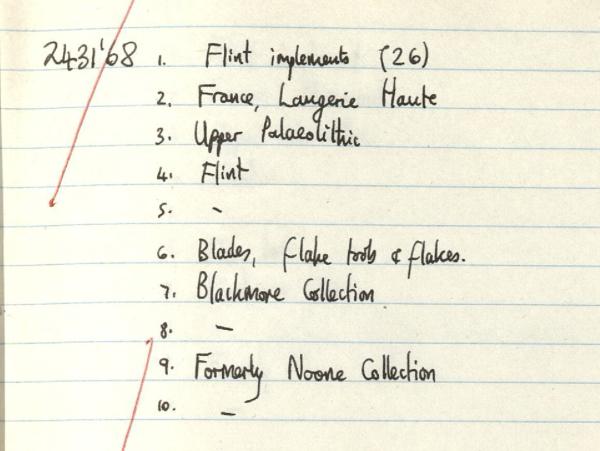 2431'68 1. Flint implements (26)
2. France, Laugerie Haute
3. Upper Palaeolithic
4. Flint
5. -
6. Blades, flake tools & flakes.
7. Blackmore Collection
8. -
9. Formerly Noone Collection
10. -